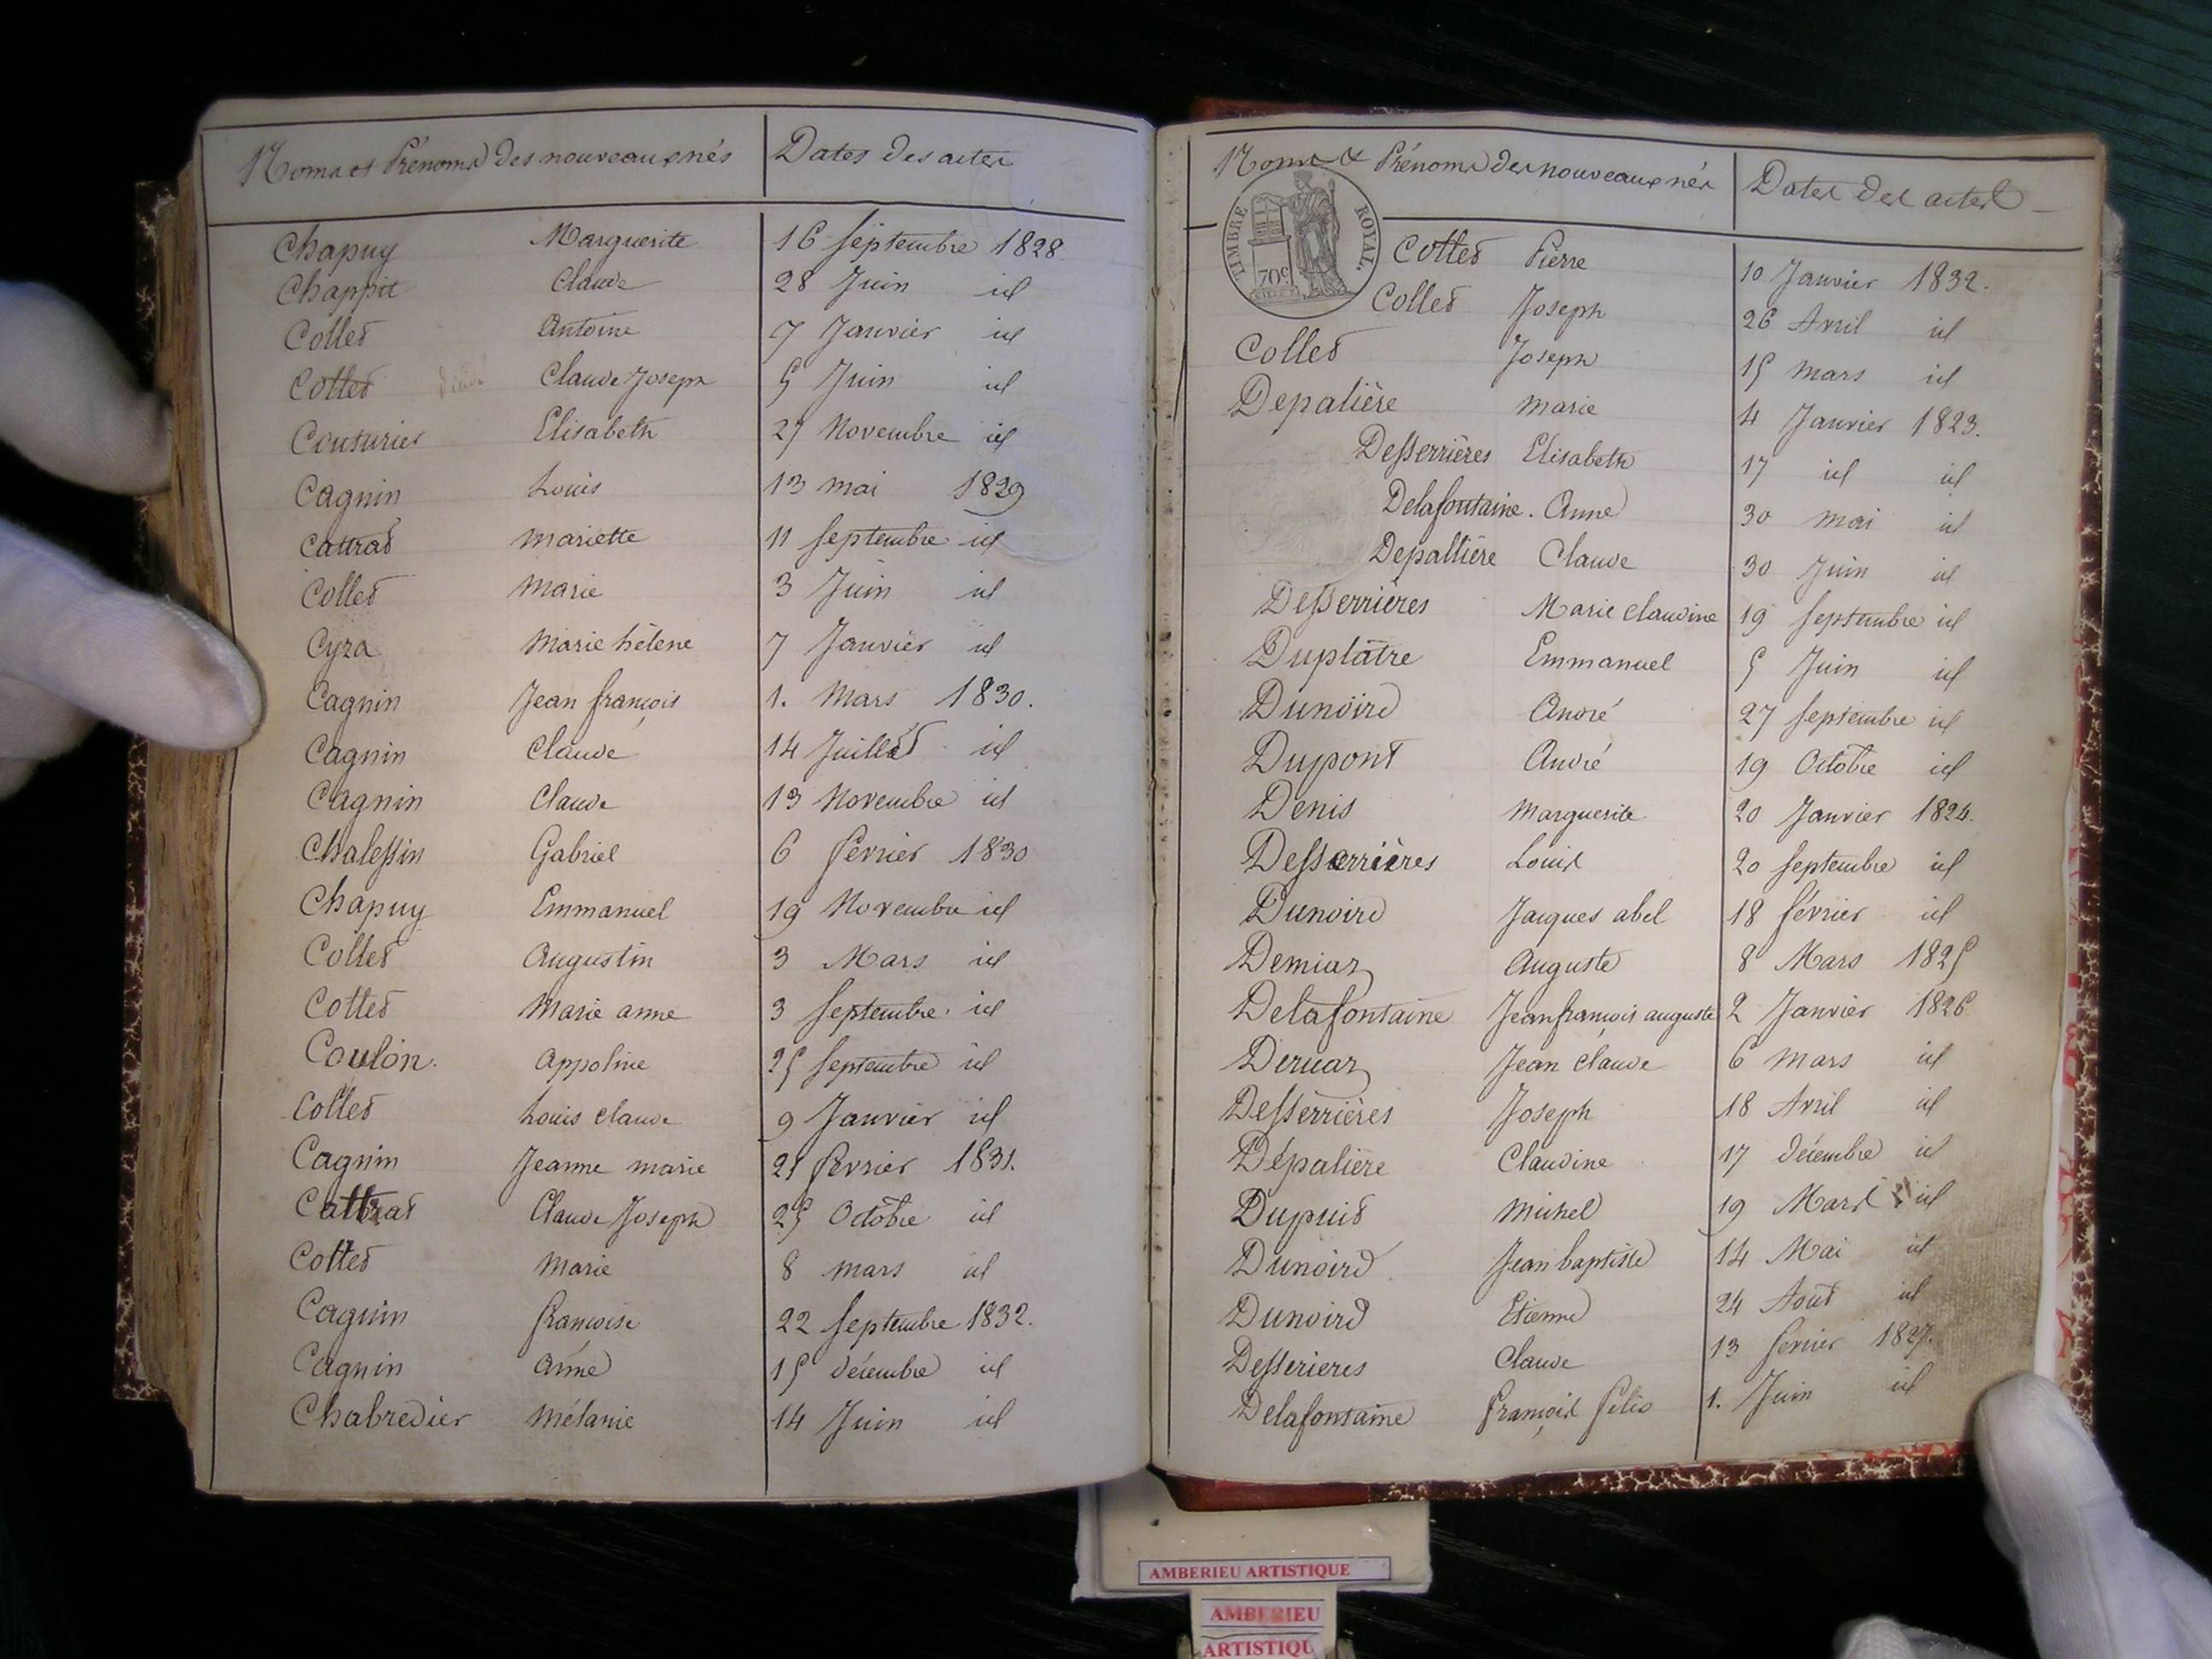 Noms et Prénoms des nouveaux nés Dates des actes
Chapuy Marguerite 16 septembre 1828.
Chappit Claude 28 Juin id
Collet Antoine 7 Janvier id
Cottet Claude Joseph 5 Juin id
Couturier Elisabeth 27 Novembre id
Cagnin Louis 13 mai 1829
Cattrat mariette 11 septembre id
Collet marie 3 Juin id
Cyza Marie hélène 7 Janvier id
Cagnin Jean françois 1. Mars 1830.
Cagnin Claude 14 Juillet id
Cagnin Claude 13 Novembre id
Chalessin Gabriel 6 fevrier 1830
Chapuy Emmanuel 19 Novembre id
Collet Augustin 3 Mars id
Cottet Marie anne 3 septembre id
Coulon. appoline 25 septembre id
Collet Louis claude 9 Janvier id
Cagnin Jeanne marie 21 fevrier 1831.
Cattrat Claude Joseph 25 Octobre id
Cottet Marie 8 mars id
Cagnin françoise 22 septembre 1832.
Cagnin anne 15 décembre id
Chabredier Mélanie 14 Juin id
Noms & Prénoms des nouveaux nés Dates des actes
TIMBRE ROYAL.
70c
Cottet Pierre 10 Janvier 1832.
Collet Joseph 26 Avril id
Collet Joseph 15 mars id
Depalière marie 4 Janvier 1823.
Desserrières Elisabeth 17 id id
Delafontaine. Anne 30 mai id
Depallière Claude 30 Juin id
Desserrières Marie claudine 19 septembre id
Duplâtre Emmanuel 5 Juin id
Dunoird André 27 septembre id
Dupont André 19 Octobre id
Denis Marguerite 20 Janvier 1824.
Desserrières Louis 20 septembre id
Dunoird Jacques abel 18 février id
Demiaz Auguste 8 Mars 1825
Delafontaine Jean françois auguste 2 Janvier 1826
Deruaz Jean claude 6 mars id
Desserrières Joseph 18 Avril id
Dépalière Claudine 17 décembre id
Dupuis Michel 19 Mars id
Dunoird Jean baptiste 14 Mai id
Dunoird Etienne 24 Août id
Desserieres Claude 13 fevrier 1827.
Delafontaine françois félix 1. Juin id
AMBERIEU ARTISTIQUE
AMBERIEU
ARTISTIQU